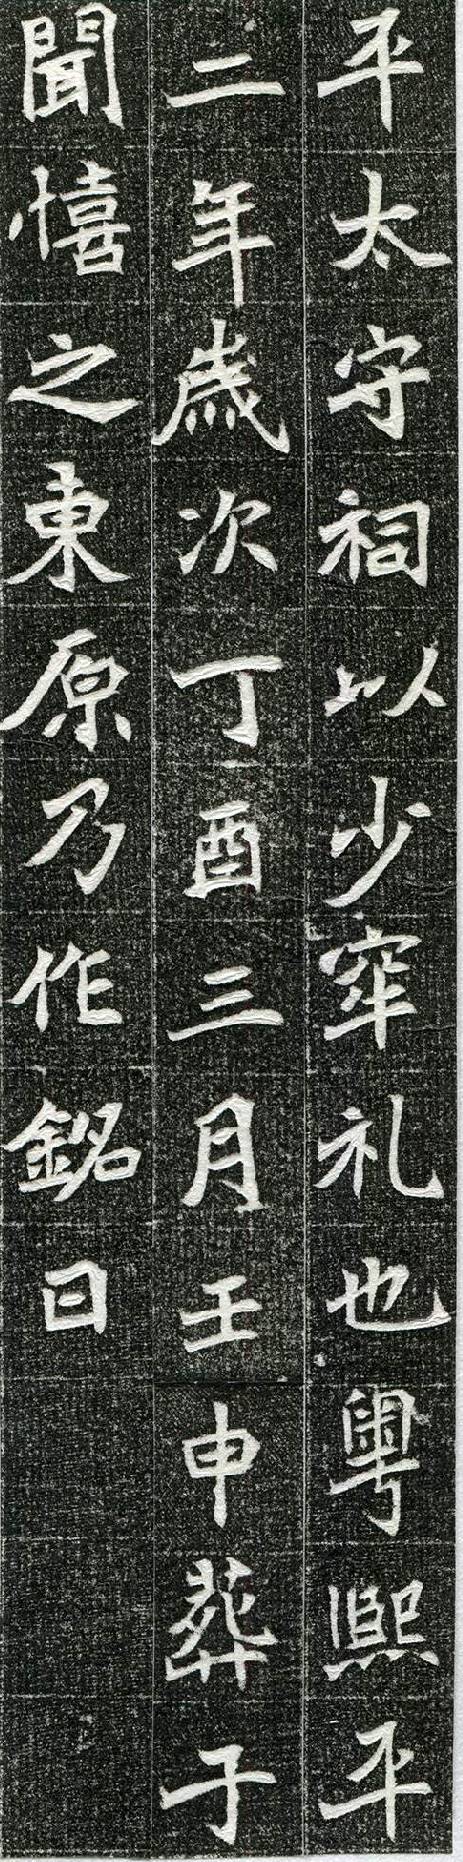 平太守祠以少窂礼也粤熙平
二年歲次丁酉三月壬申葬于
聞憘之東原乃作銘曰